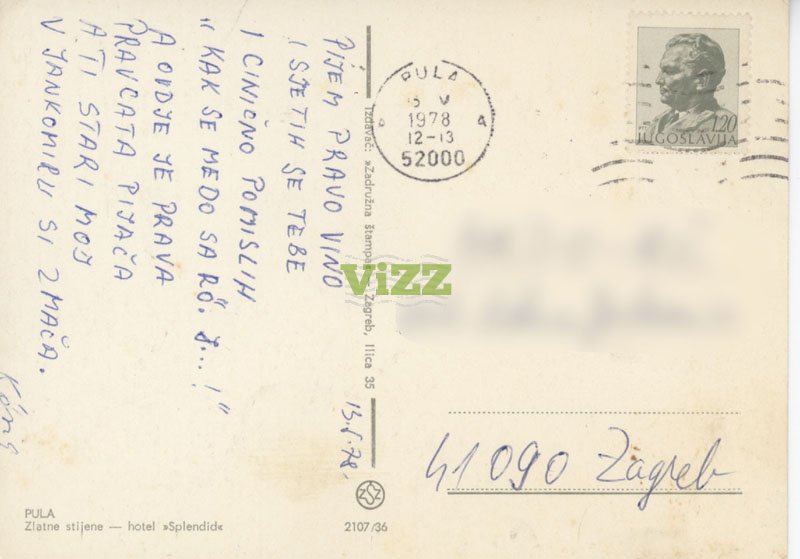 PIJEM PRAVO VINO
I SJETIH SE TEBE
I CINIČNO POMISLIH
"KAK SE MEDO SA RÖ. J...!"
A OVDJE JE PRAVA
PRAVCATA PIJAČA
A TI STARI MOJ
V JANKOMIRU SI ZMAČA.
13.5.78.
Izdavač: »Zadružna štampa« Zagreb, Ilica 35
ViZZ
PULA
1978
12-13
52000
1.20
JUGOSLAVIJA
41090 Zagreb
PULA
Zlatne stijene — hotel »Splendid«
2107/36